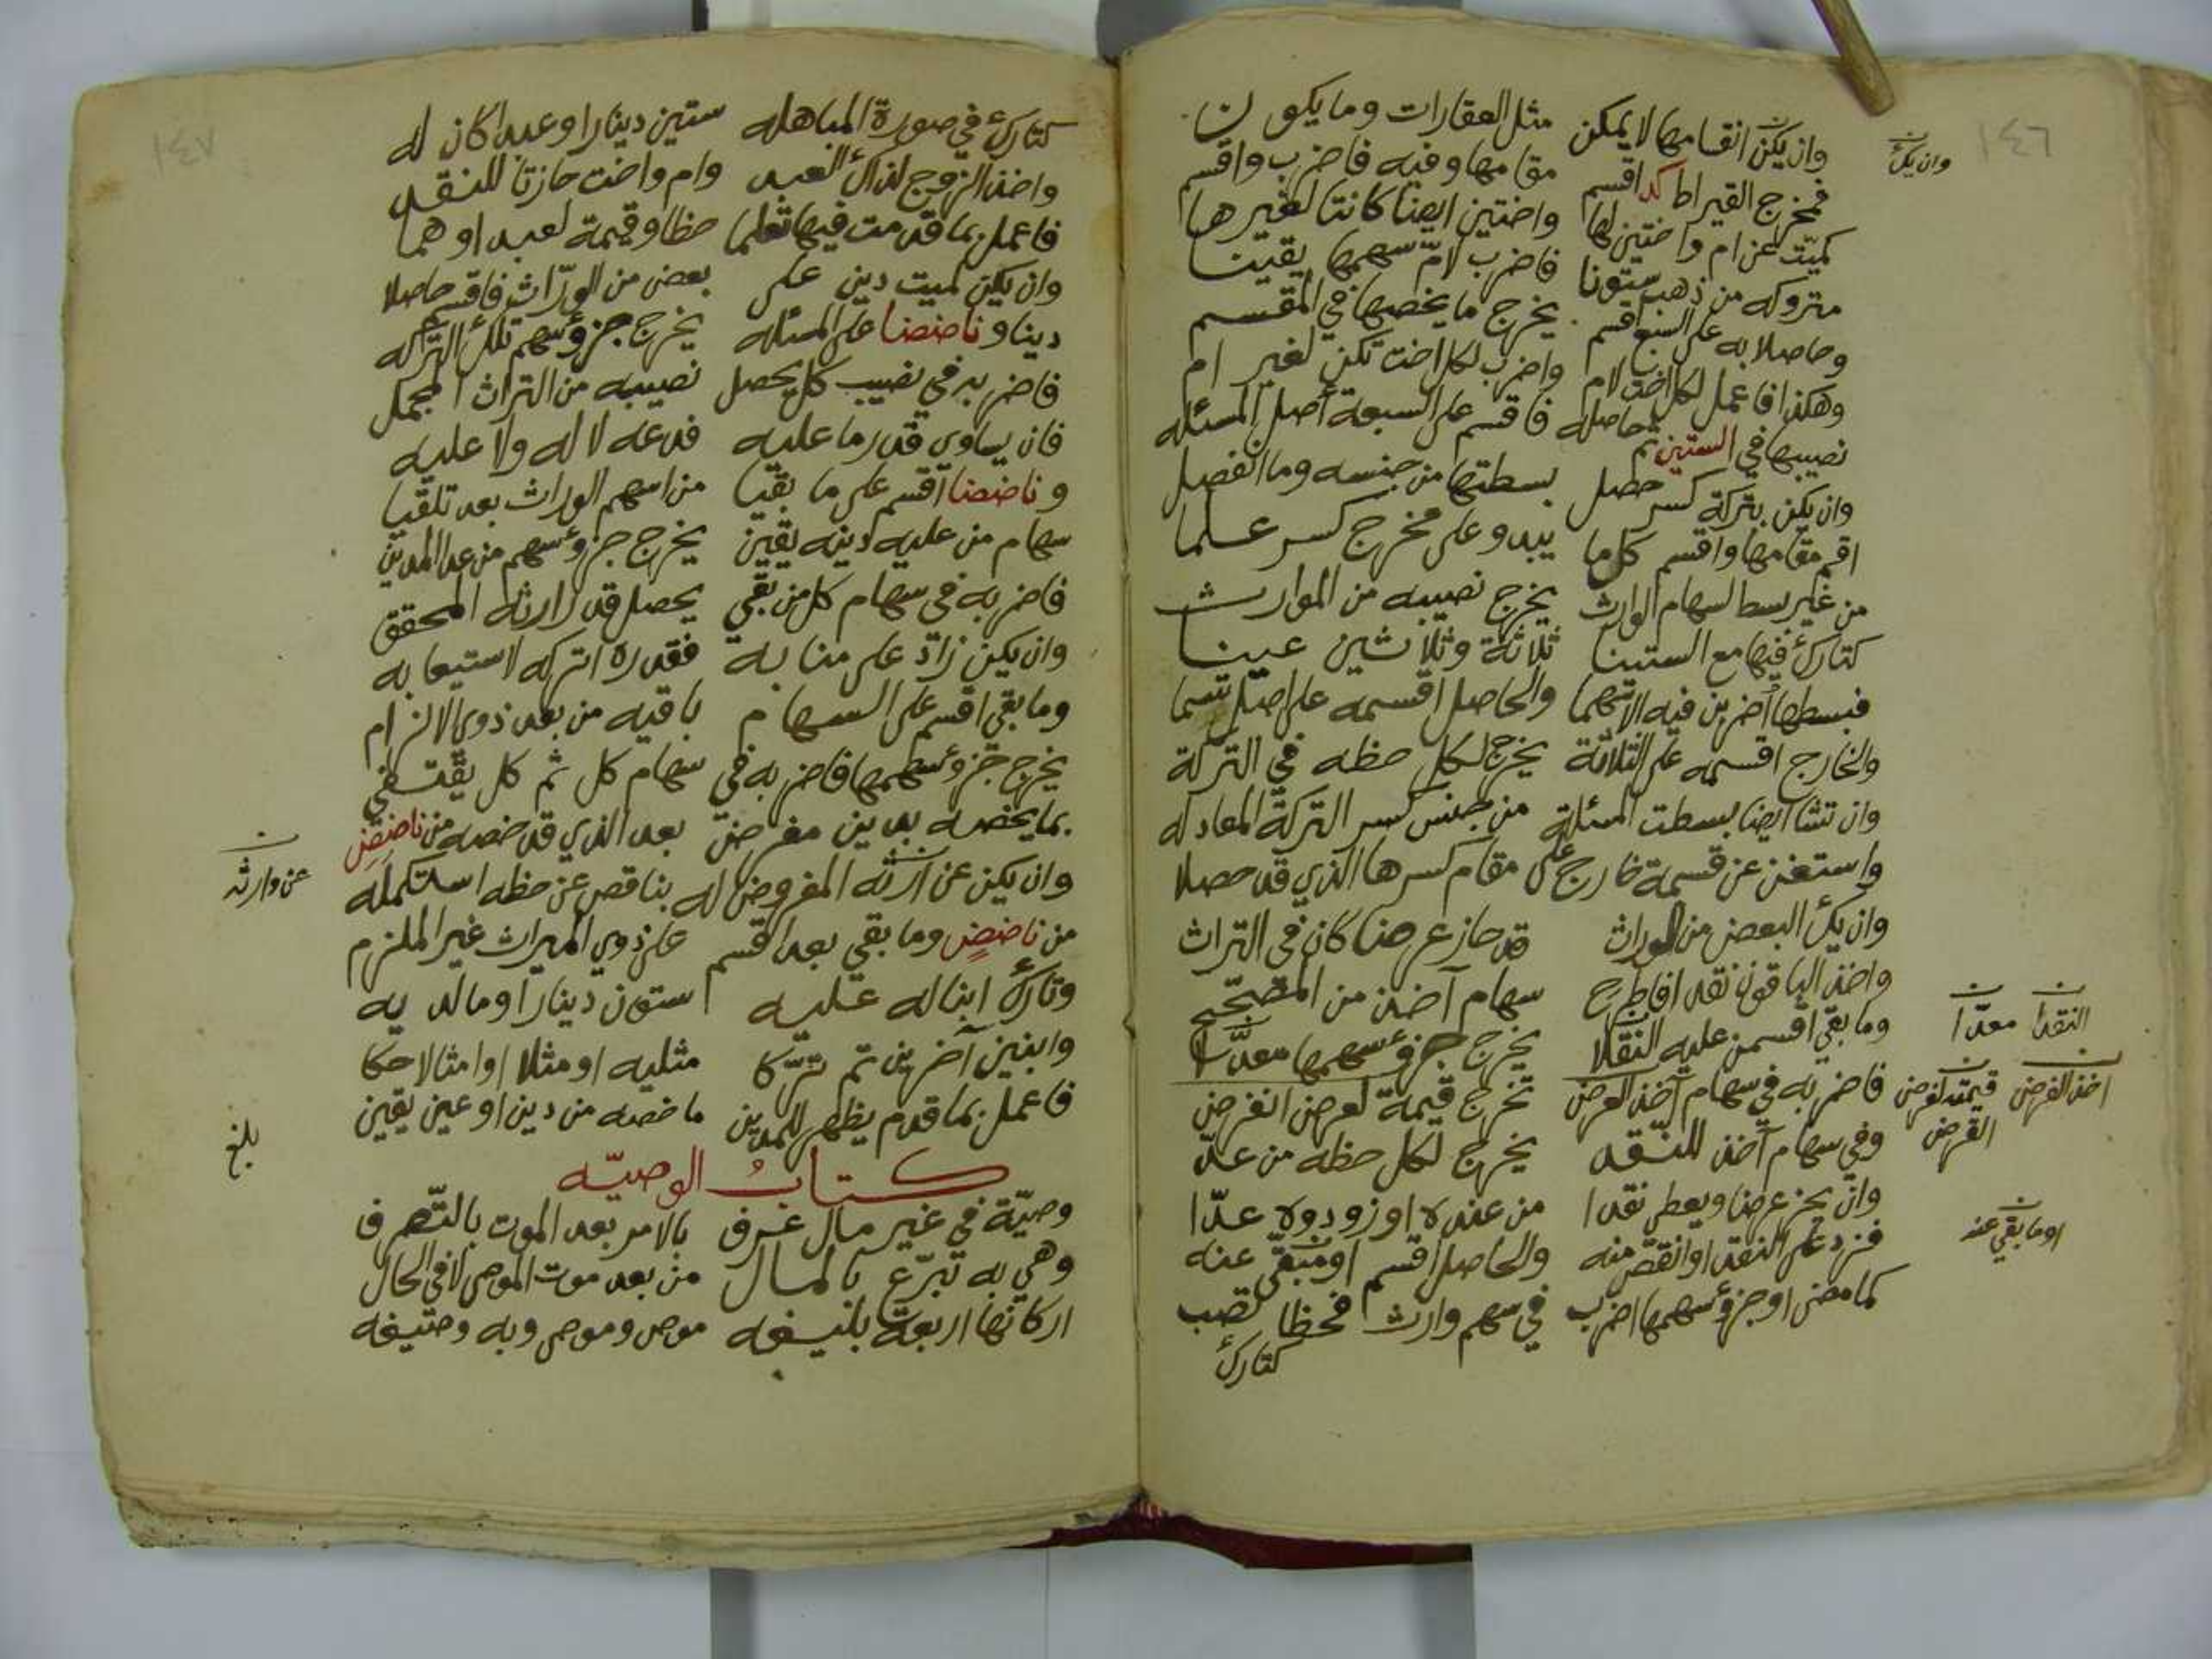 ١٤٦
وان يكن انقسامها لا يمكن مثل العقارات وما يكون
وان يك
فمخرج القيراط كد اقسم مقامها وفيه فاضرب واقسم
كميت عن ام واختين لها واختين ايضا كانتا لغيرها
متروكه من ذهب ستونا فاضرب لام سهمها يقينا
وحاصلا به على السبع اقسم يخرج ما يخصها في المقسم
وهكذا فاعمل لكل اخت لام واضرب لكل اخت تكن لغير ام
نصيبها في الستين ثم حاصله فاقسم على السبعة أصل المسئله
وان يكن بتركة كسر حصل بسطتها من جنسه وما انفصل
اقم مقامها واقسم كل ما يبدو على مخرج كسر علما
من غير بسط لسهام الوارث يخرج نصيبه من الموارث
كتارك فيها مع الستينا ثلاثة وثلاثين عينا
فبسطها اضربن فيه الاسهما والحاصل اقسمه على اصل سما
والخارج اقسمه على الثلاثة يخرج لكل حظه في التركة
وان تشا ايضا بسطت المسئلة من جنس كسر التركة المعادله
واستغن عن قسمة خارج على مقام كسرها الذي قد حصلا
وان يك البعض من الوراث قد حاز عرضا كان في التراث
واخذ الباقون نقدا فاطرح سهام آخذ من المصحح
وما بقي اقسمن عليه النقلا يخرج جزؤ سهمها معدلا
النقدا معدا
فاضرب به في سهام آخذ العرض تخرج قيمة لعرض انفرض
اخذ الفرض قيمته لفرض
الفرض
وفي سهام آخذ للنقد يخرج لكل حظه من عد
وان يحز عرضا ويعطى نقدا من عنده او زودوه عدا
فزد على النقد او انقص منه والحاصل اقسم او متبقى عنه
او ما بقي عنه
كما مضى او جزؤ سهمها اضرب في سهم وارث فحظا تصب
كتارك
١٤٧
كتارك في صورة المباهله ستين دينارا وعبدا كان له
واخذ الزوج لذاك العبد وام واخت حازتا للنقد
فاعمل بما قدمت فيها تعلما حظا وقيمة لعبد او هما
وان يكن لميت دين على بعض من الوراث فاقسم حاصلا
دينا وناضضا على المسئله يخرج جزؤ سهم تلك التركه
فاضربه في نصيب كل يحصل نصيبه من التراث المجمل
فان يساوى قدر ما عليه فدعه لا له ولا عليه
وناضضا اقسم على ما بقيا من اسهم الوراث بعد تلقيا
سهام من عليه دينه يقين يخرج جزؤ سهم من عدا المدين
فاضربه في سهام كل من بقي يحصل قدر ارثه المحقق
وان يكن زاد على منابه فقدره اتركه لاستيعابه
وما بقي اقسم على السهام باقيه من بعد ذوى الالزام
يخرج جزؤ سهمها فاضربه في سهام كل ثم كل يقتفي
بما يخصه بدين مفرض بعد الذي قد خصه من ناضض
وان يكن عن ارثه المفروض له بناقص عن حظه استكمله
عن وارثه
من ناضض وما بقي بعد اقسم على ذوي الميراث غير الملزم
وتارك ابنا له عليه ستون دينارا وما لديه
وابنين آخرين ثم تركا مثليه او مثلا او امثالا حكا
فاعمل بما قدم يظهر للمدين ما خصه من دين او عين يقين
بلغ
كتاب الوصيه
وصية في غير مال عرف بالامر بعد الموت بالتصرف
وهي به تبرع بالمال من بعد موت الموصى لا في الحال
اركانها اربعة بلنيفه موص وموصى وبه وصتيغه